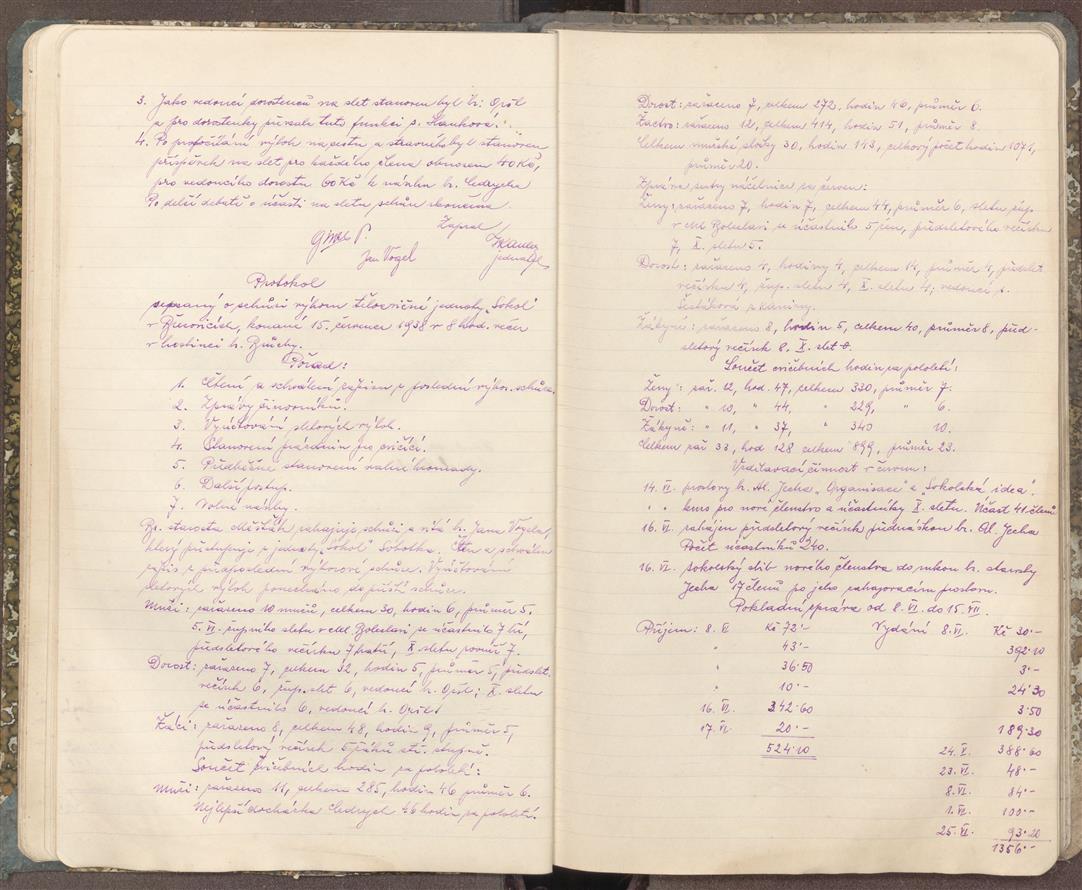 3. Jako vedoucí dorostenců na slet stanoven byl br. Opöl
a pro dorostenky převzala tuto funkci s. Hanková.
4. Po propočítání výloh na cestu a stravného byl stanoven
příspěvek na slet pro každého člena obnosem 40 Kč,
pro vedoucího dorostu 60 Kč k návrhu br. Cedrycha
Po delší debatě o účasti na sletu schůze skončena.
Zapsal
Jan Vogel
jednatel
Protokol
sepsaný o schůzi výboru tělocvičné jednoty „Sokol"
v Březovicích, konané 15. července 1938 v 8 hod. večer
v hostinci br. Bruchy.
Pořad:
1. Čtení a schválení zápisu z poslední výbor. schůze.
2. Zprávy činovníků.
3. Vyúčtování sletových výloh.
4. Stanovení prázdnin pro cvičící.
5. Předběžné stanovení valné hromady.
6. Další postup.
7. Volné návrhy.
Br. starosta zahajuje schůzi a vítá br. Jana Vogela,
který přistupuje z jednoty „Sokol" Sobotka. Čten a schválen
zápis z předposlední výborové schůze. Vyúčtování
sletových výloh ponecháno do příští schůze.
Muži: zařazeno 10 mužů, celkem 30, hodin 6, průměr 5.
5. VI. župního sletu v Ml. Boleslavi se účastnilo 7 br.,
předsletového večírku 7 bratří, X sletu rovněž 7.
Dorost: zařazeno 7, celkem 32, hodin 5, průměr 5, předslet.
večírek 6, žup. slet 6, vedoucí br. Opöl; X. sletu
se účastnilo 6, vedoucí br. Opöl.
Žáci: zařazeno 8, celkem 48, hodin 9, průměr 5,
předsletový večírek 5 žáků stř. stupně.
Součet cvičebních hodin za pololetí:
Muži: zařazeno 11, celkem 285, hodin 46 průměr 6.
Nejlepší docházka Cedrych 46 hodin za pololetí.
Dorost: zařazeno 7, celkem 272, hodin 46, průměr 6.
Žactvo: zařazeno 12, celkem 414, hodin 51, průměr 8.
Celkem mužské složky 30, hodin 143, celkový počet hodin 1071,
průměr 20.
Zpráva sestry náčelnice za červen:
Ženy: zařazeno 7, hodin 7, celkem 44, průměr 6, sletu žup.
v Ml. Boleslavi se účastnilo 5 žen, předsletového večírku
7, X. sletu 5.
Dorost: zařazeno 4, hodiny 4, celkem 14, průměr 4, předslet.
večírku 4, žup. sletu 4, X. sletu 4, vedoucí s.
Žákyně: zařazeno 8, hodin 5, celkem 40, průměr 8, před-
sletový večírek 8. X. slet 8.
Součet cvičebních hodin za pololetí:
Ženy: zař. 12, hod. 47, celkem 330, průměr 7.
Dorost: " 10, " 44, " 229, " 6.
Žákyně: " 11, " 37, " 340 10.
Celkem zař 33, hod 128 celkem 899, průměr 23.
Vzdělavací činnost v červnu:
14. VI. proslovy br. Al. Jecha „Organisace" a „Sokolská idea".
" " kurs pro nové členstvo a účastníky X. sletu. Účast 41 členů
16. VI. zahájen předsletový večírek přednáškou br. Al. Jecha
Počet účastníků 240.
16. VI. sokolský slib nového členstva do rukou br. starosty
Jecha 17 členů po jeho zahajovacím proslovu.
Pokladní zpráva od 8. VI. do 15. VII.
Příjem: 8. VI Kč 72·- Vydání 8. VI. Kč 30·-
" 43·- 392·10
" 36·50 3·-
" 10·- 24·30
16. VI. 342·60 3·50
17. VI. 20·- 189·30
524·10 24. V. 388·60
23. VI. 48·-
8. VI. 84·-
1. VI. 100·-
25. VI. 93·20
1356·-